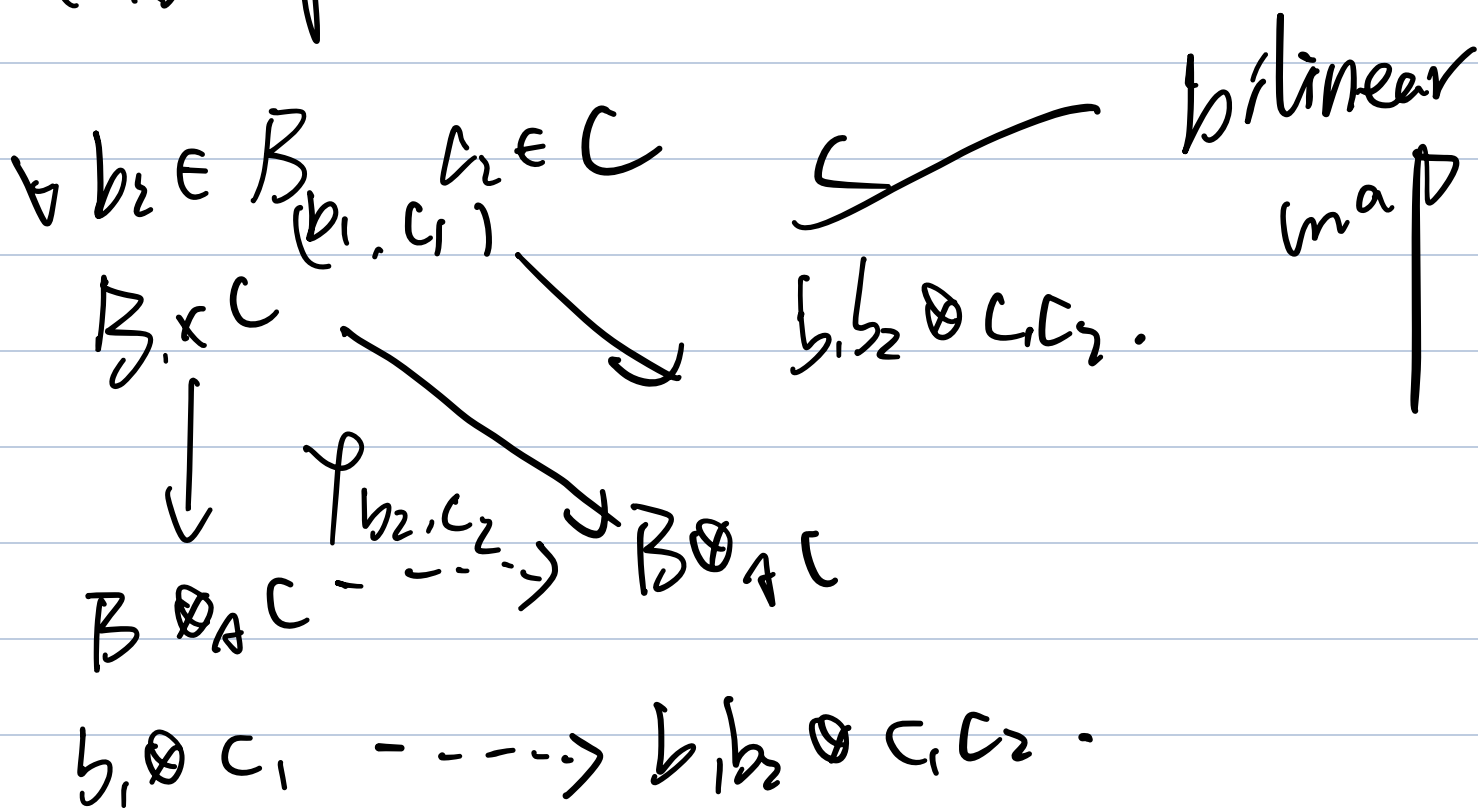 ∀ b₂ ∈ B c₂ ∈ C bilinear map
(b₁, c₁)
B × C b₁b₂ ⊗ c₁c₂.
φ_{b₂,c₂}
B ⊗_A C ----> B ⊗_A C
b₁ ⊗ c₁ ----> b₁b₂ ⊗ c₁c₂.